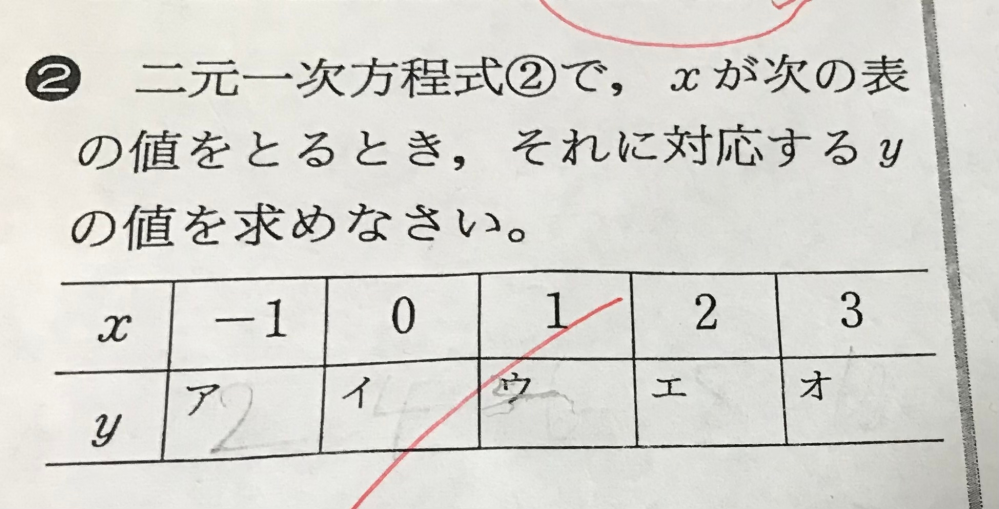 ❷ 二元一次方程式②で，xが次の表
の値をとるとき，それに対応するy
の値を求めなさい。
x −1 0 1 2 3
y ア 2 イ 4 ウ エ オ